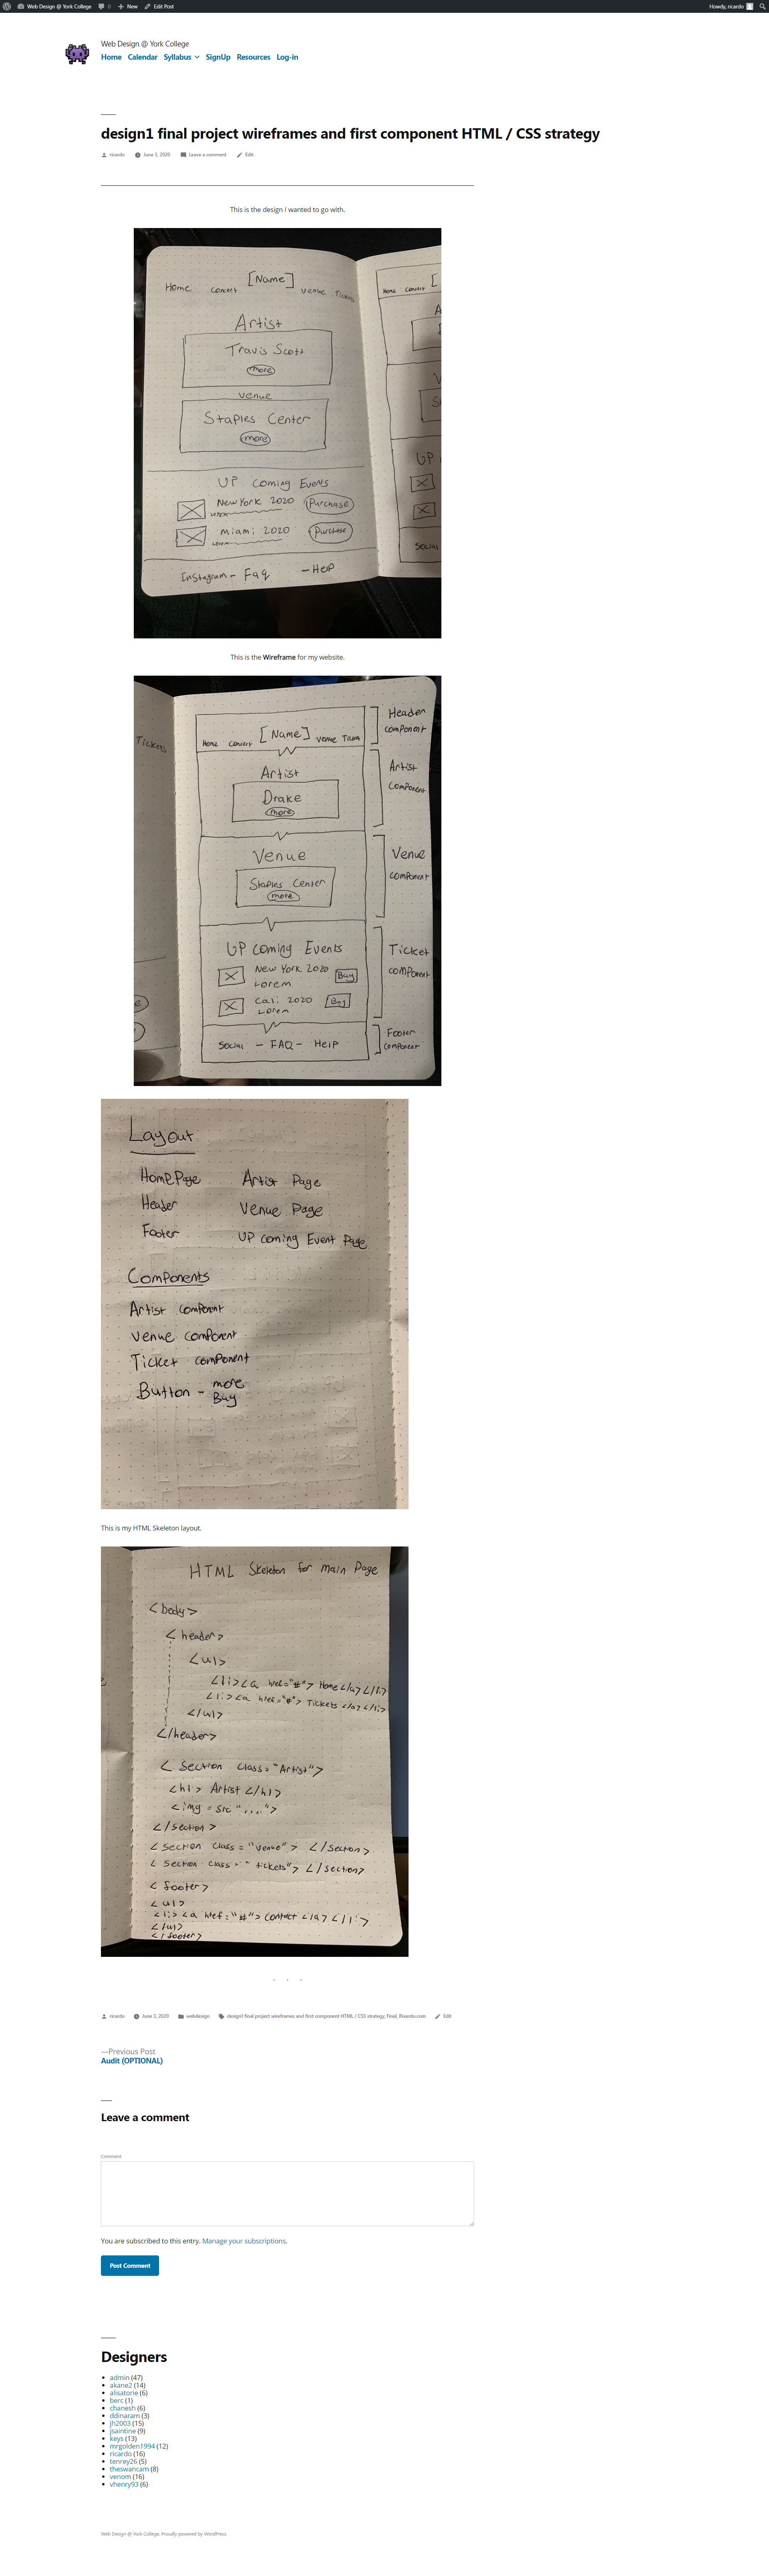 Web Design @ York College 0 New Edit Post Howdy, ricardo
Web Design @ York College
Home Calendar Syllabus SignUp Resources Log-in
design1 final project wireframes and first component HTML / CSS strategy
ricardo June 3, 2020 Leave a comment Edit
This is the design I wanted to go with.
[Name]
Home Concert Venue Tickets
Artist
Travis Scott
more
Venue
Staples Center
more
UP Coming Events
New York 2020 Purchase
Lorem
miami 2020 Purchase
Lorem
Instagram - Faq - Help
Home Concert [
UP
Social
This is the Wireframe for my website.
Tickets
Home Concert [Name] Venue Tickets
Header
component
Artist
Drake
more
Artist
Component
Venue
Staples Center
more
Venue
component
UP Coming Events
New York 2020 Buy
Lorem
Cali 2020 Buy
Lorem
Ticket
component
Social - FAQ - Help
Footer
Component
Layout
HomePage Artist Page
Header Venue Page
Footer UP coming Event Page
Components
Artist component
Venue component
Ticket component
Button - more
Buy
This is my HTML Skeleton layout.
HTML Skeleton for main Page
<body>
<header>
<ul>
<li><a href="#"> Home </a></li>
<li><a href="#"> Tickets </a></li>
</ul>
</header>
< Section class="Artist">
<h1> Artist </h1>
<img = src "....">
</section>
< section class = "venue"> </section>
< section class = "tickets"> </section>
< footer>
<ul>
<li><a href="#"> Contact </a></li>
</ul>
</footer>
ricardo June 3, 2020 webdesign design1 final project wireframes and first component HTML / CSS strategy, Final, Rixardo.com Edit
—Previous Post
Audit (OPTIONAL)
Leave a comment
Comment
You are subscribed to this entry. Manage your subscriptions.
Post Comment
Designers
admin (47)
akane2 (14)
alisatorie (6)
berc (1)
chanesh (6)
ddinaram (3)
jh2003 (15)
jsaintine (9)
keys (13)
mrgolden1994 (12)
ricardo (16)
tenrey26 (5)
theswancam (8)
venom (16)
vhenry93 (6)
Web Design @ York College, Proudly powered by WordPress.